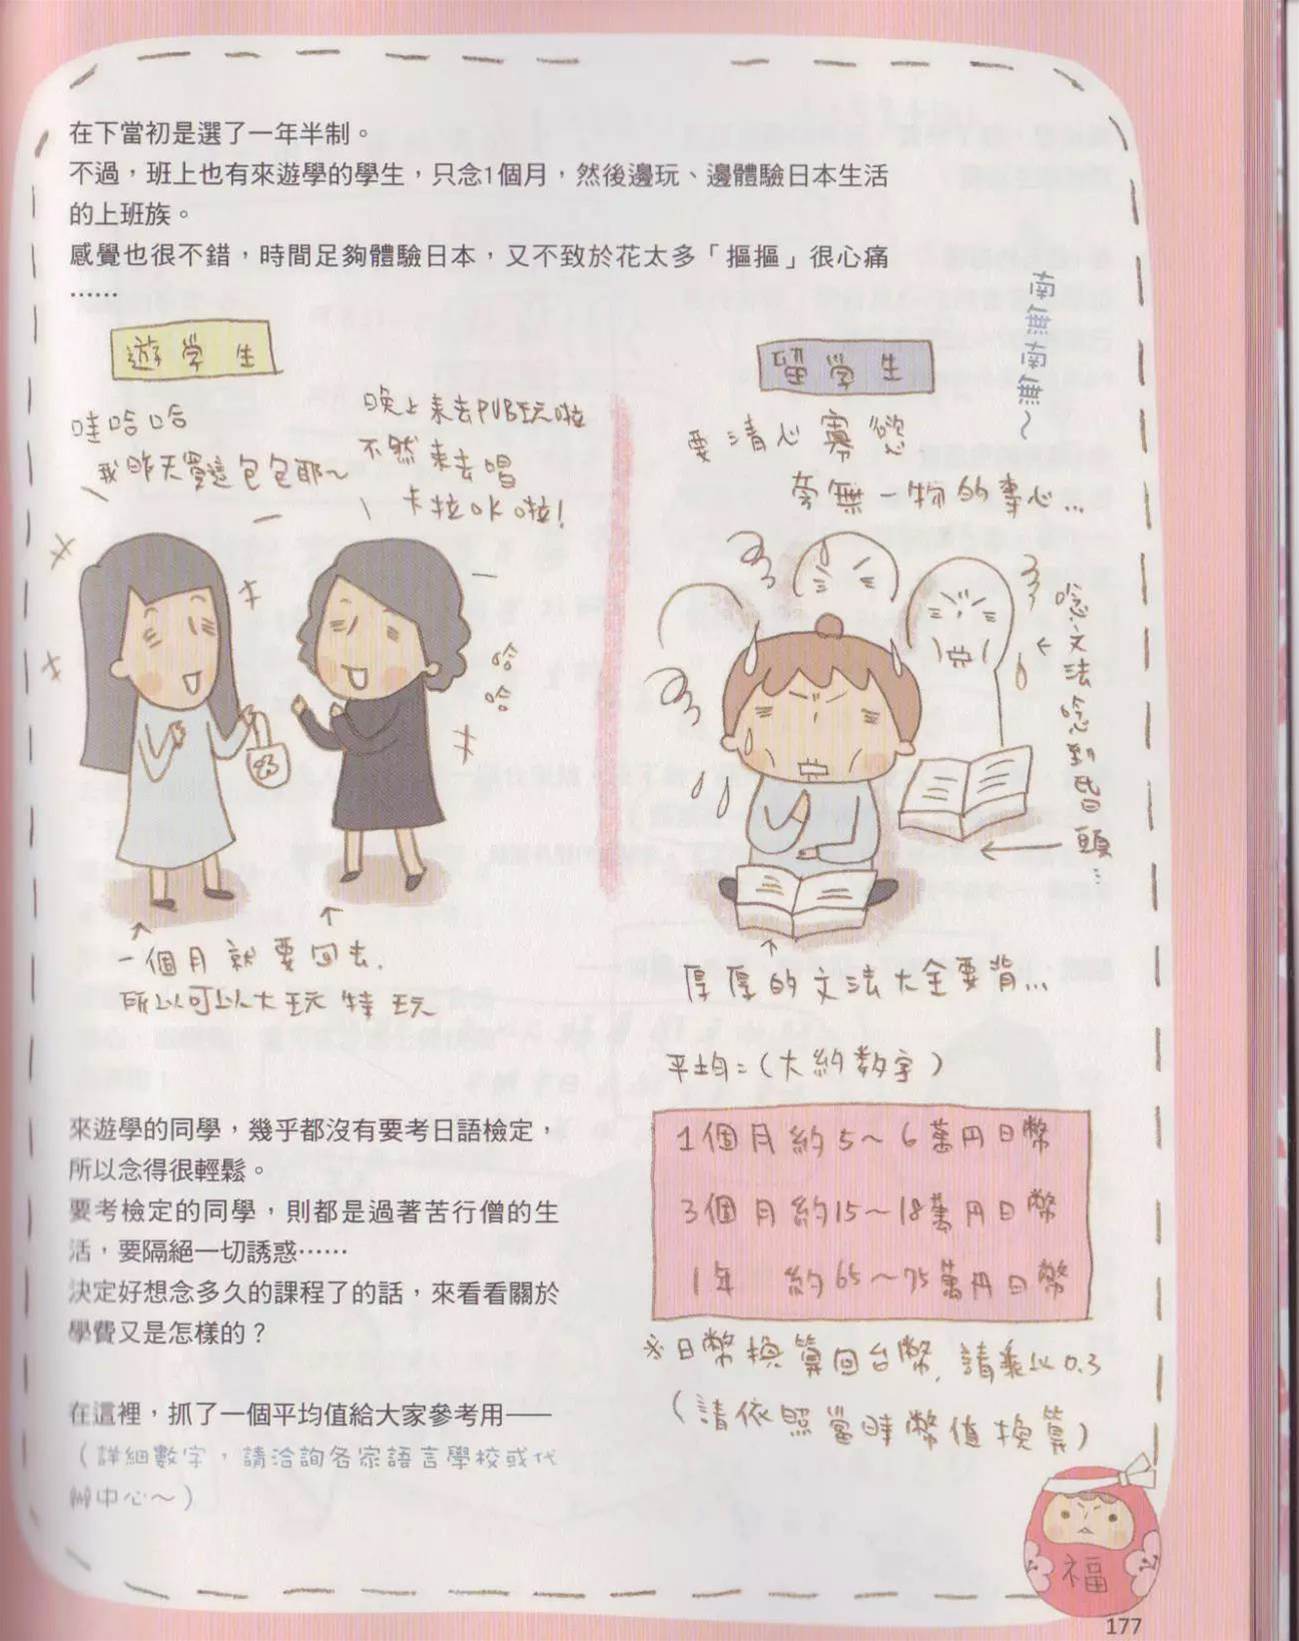 在下當初是選了一年半制。
不過，班上也有來遊學的學生，只念1個月，然後邊玩、邊體驗日本生活
的上班族。
感覺也很不錯，時間足夠體驗日本，又不致於花太多「摳摳」很心痛
……
遊学生
哇哈哈
我昨天買這包包耶～
晚上來去PUB玩啦
不然來去唱
卡拉OK啦！
哈
哈
一個月就要回去，
所以可以大玩特玩
留学生
南無南無～
要清心寡慾
旁無一物的專心…
唸文法唸到昏頭…
厚厚的文法大全要背…
來遊學的同學，幾乎都沒有要考日語檢定，
所以念得很輕鬆。
要考檢定的同學，則都是過著苦行僧的生
活，要隔絕一切誘惑……
決定好想念多久的課程了的話，來看看關於
學費又是怎樣的？
在這裡，抓了一個平均值給大家參考用——
（詳細數字，請洽詢各家語言學校或代
辦中心～）
平均：（大約数字）
1個月約5～6萬円日幣
3個月約15～18萬円日幣
1年 約65～75萬円日幣
※日幣換算回台幣，請乘以0.3
（請依照當時幣值換算）
福
177